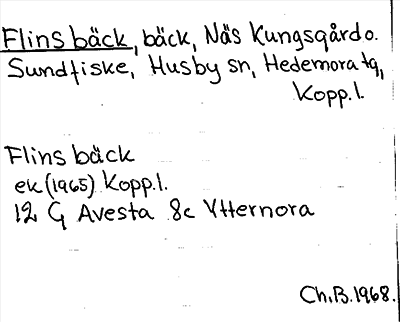 Flins bäck, bäck, Näs Kungsgård o.
Sundfiske, Husby sn, Hedemora tg,
Kopp.l.
Flins bäck
ek (1965) Kopp.l.
12 G Avesta 8c Ytternora
Ch.B.1968.